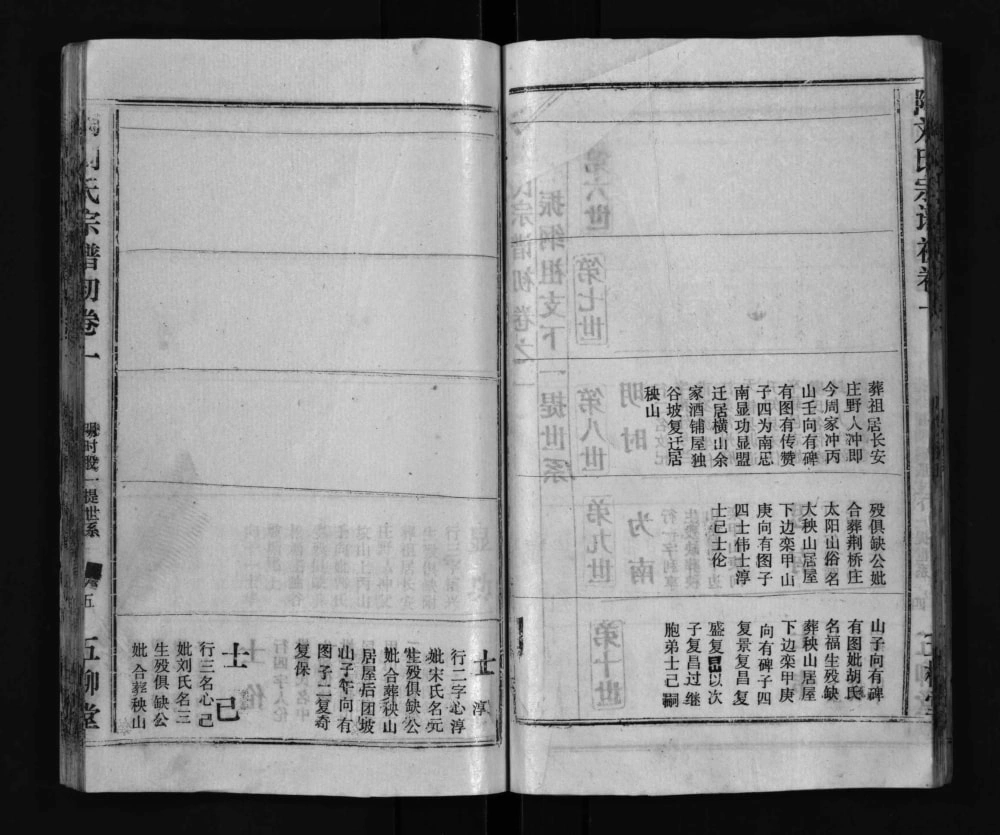 葬祖居长安
庄野人冲即
今周家冲丙
山壬向有碑
有图有传赞
子四为南忠
南显功显盟
迁居横山余
家酒铺屋独
谷坡复迁居
秧山
殁俱缺公妣
合葬荆桥庄
太阳山俗名
大秧山居屋
下边栾甲山
庚向有图子
四士伟士淳
士已士伦
山子向有碑
有图妣胡氏
名福生殁缺
葬秧山居屋
下边栾甲庚
向有碑子四
复景复昌复
盛复昆以次
子复昌过继
胞弟士己嗣
士淳
行二字心淳
妣宋氏名元
生殁俱缺公
妣合葬秧山
居屋后团坡
山子午向有
图子二复奇
复保
士己
行三名心己
妣刘氏名三
生殁俱缺公
妣合葬秧山
氏宗谱初卷一
明时股一提世系
五
五柳堂